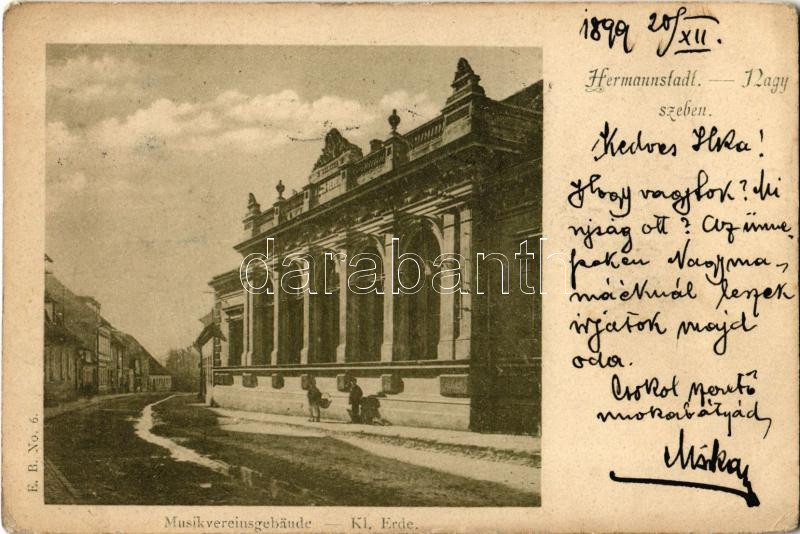 1899 20/XII.
Hermannstadt. — Nagy
szeben.
Kedves Ilka!
Hogy vagytok? Mi
ujság ott? Az ünne-
peken Nagyma-
máéknál leszek
irjatok majd
oda.
Csókol szerető
unokabátyád,
Miska
darabanth
E. B. No. 6.
Musikvereinsgebäude — Kl. Erde.